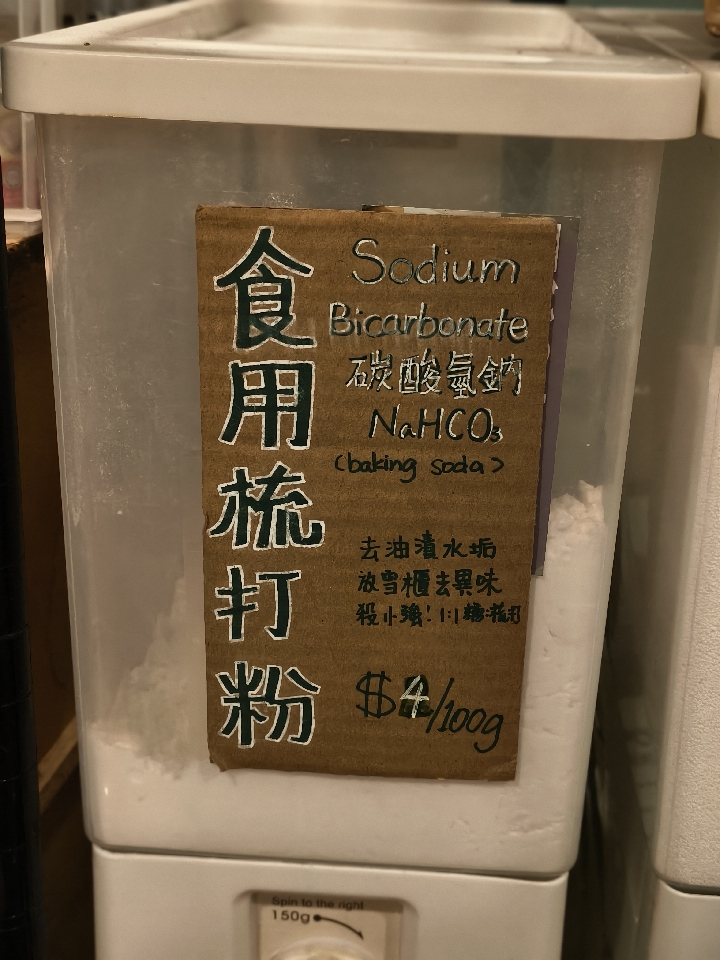 食用梳打粉
Sodium
Bicarbonate
碳酸氫鈉
NaHCO₃
(baking soda)
去油漬水垢
放雪櫃去異味
殺小強! 1:1糖:梳打
$4/100g
Spin to the right
150g